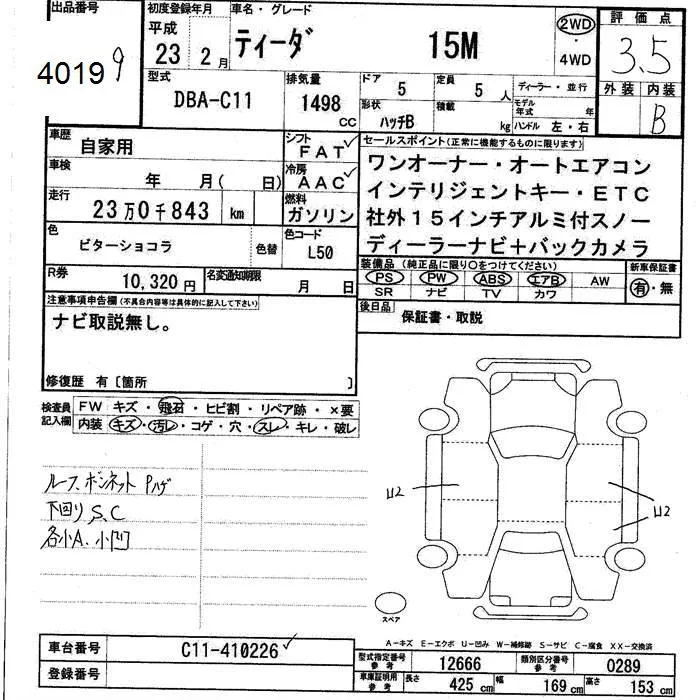 出品番号 初度登録年月 車名・グレード 評価点
40199 平成 23 2月 ティーダ 15M 2WD・4WD 3.5
型式 排気量 ドア 5 定員 5人 ディーラー・並行 外装 内装
DBA-C11 1498 cc 形状 ハッチB 積載 kg モデル年式 年 ハンドル 左・右 B
車歴 自家用 シフト FAT セールスポイント(正常に機能するものに限ります)
車検 年 月( 日) 冷房 AAC ワンオーナー・オートエアコン
インテリジェントキー・ETC
走行 23万0千843 km 燃料 ガソリン 社外15インチアルミ付スノー
色 ビターショコラ 色替 色コード L50 ディーラーナビ+バックカメラ
装備品(純正品に限り○をつけてください) 新車保証書
PS PW ABS エアB AW 有・無
SR ナビ TV カワ
R券 10,320円 名変通知期限 月 日
後日品 保証書・取説
注意事項申告欄(不具合内容等は具体的に記入して下さい)
ナビ取説無し。
修復歴 有〔箇所 〕
検査員記入欄 FW キズ・飛石・ヒビ割・リペア跡・×要
内装 キズ・汚レ・コゲ・穴・スレ・キレ・破レ
ルーフ、ボンネット Pハゲ
下回り S、C
各小A、小凹
U2 U2
U2
スペア
A-キズ E-エクボ U-凹み W-補修跡 S-サビ C-腐食 XX-交換済
車台番号 C11-410226
登録番号
型式指定番号 参考 12666 類別区分番号 参考 0289
車庫証明用 参考 長さ 425 cm 幅 169 cm 高さ 153 cm